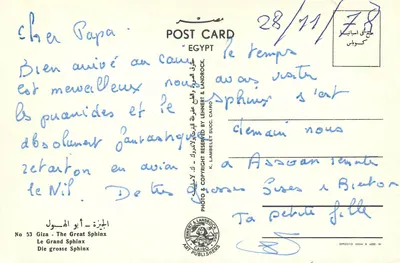 مصر
28/11/78
POST CARD
EGYPT
Cher Papa.
Bien arrivé au caire le temps
est merveilleux nous avons visité
les pyramides et le sphinx s'est
absolument fantastique demain nous
en avion a Assouan
le Nil. De très grosses Bises a Bientôt
Ta petite fille
الجيزة - أبو الهول
No 53 Giza - The Great Sphinx
Le Grand Sphinx
Die grosse Sphinx
PHOTO & COPYRIGHT RESERVED BY LEHNERT & LANDROCK.
K. LAMBELET SUCC. CAIRO
LEHNERT & LANDROCK
CAIRO
ART PUBLISHERS